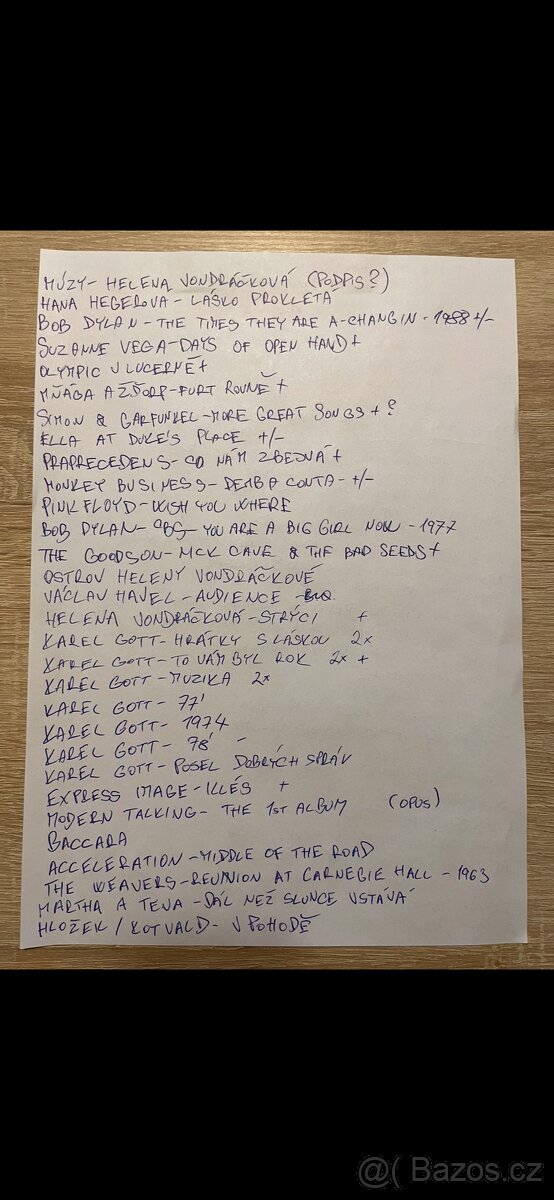 MÚZY - HELENA VONDRÁČKOVÁ (PODPIS?)
HANA HEGEROVA - LÁSKO PROKLETÁ
BOB DYLAN - THE TIMES THEY ARE A-CHANGIN - 1988 +/-
SUZANNE VEGA - DAYS OF OPEN HAND +
OLYMPIC V LUCERNĚ +
MŇÁGA A ŽĎORP - FURT ROVNĚ +
SIMON & GARFUNKEL - MORE GREAT SONGS + ?
ELLA AT DUKE'S PLACE +/-
PRAPRECEDENS - CO NÁM ZBEJVÁ +
MONKEY BUSINESS - DEMBA CONTA - +/-
PINK FLOYD - WISH YOU WHERE
BOB DYLAN - CBS - YOU ARE A BIG GIRL NOW - 1977
THE GOODSON - NICK CAVE & THE BAD SEEDS +
OSTROV HELENY VONDRÁČKOVÉ
VÁCLAV HAVEL - AUDIENCE -
HELENA VONDRÁČKOVÁ - STRÝCI +
KAREL GOTT - HRÁTKY S LÁSKOU 2x
KAREL GOTT - TO VÁM BYL ROK 2x +
KAREL GOTT - MUZIKA 2x
KAREL GOTT - 77'
KAREL GOTT - 1974
KAREL GOTT - 78' -
KAREL GOTT - POSEL DOBRÝCH SPRÁV
EXPRESS IMAGE - ILLÉS +
MODERN TALKING - THE 1ST ALBUM (OPUS)
BACCARA
ACCELERATION - MIDDLE OF THE ROAD
THE WEAVERS - REUNION AT CARNEGIE HALL - 1963
MARTHA A TENA - DÁL NEŽ SLUNCE VSTÁVÁ
HLOŽEK / KOTVALD - V POHODĚ
@( Bazos.cz